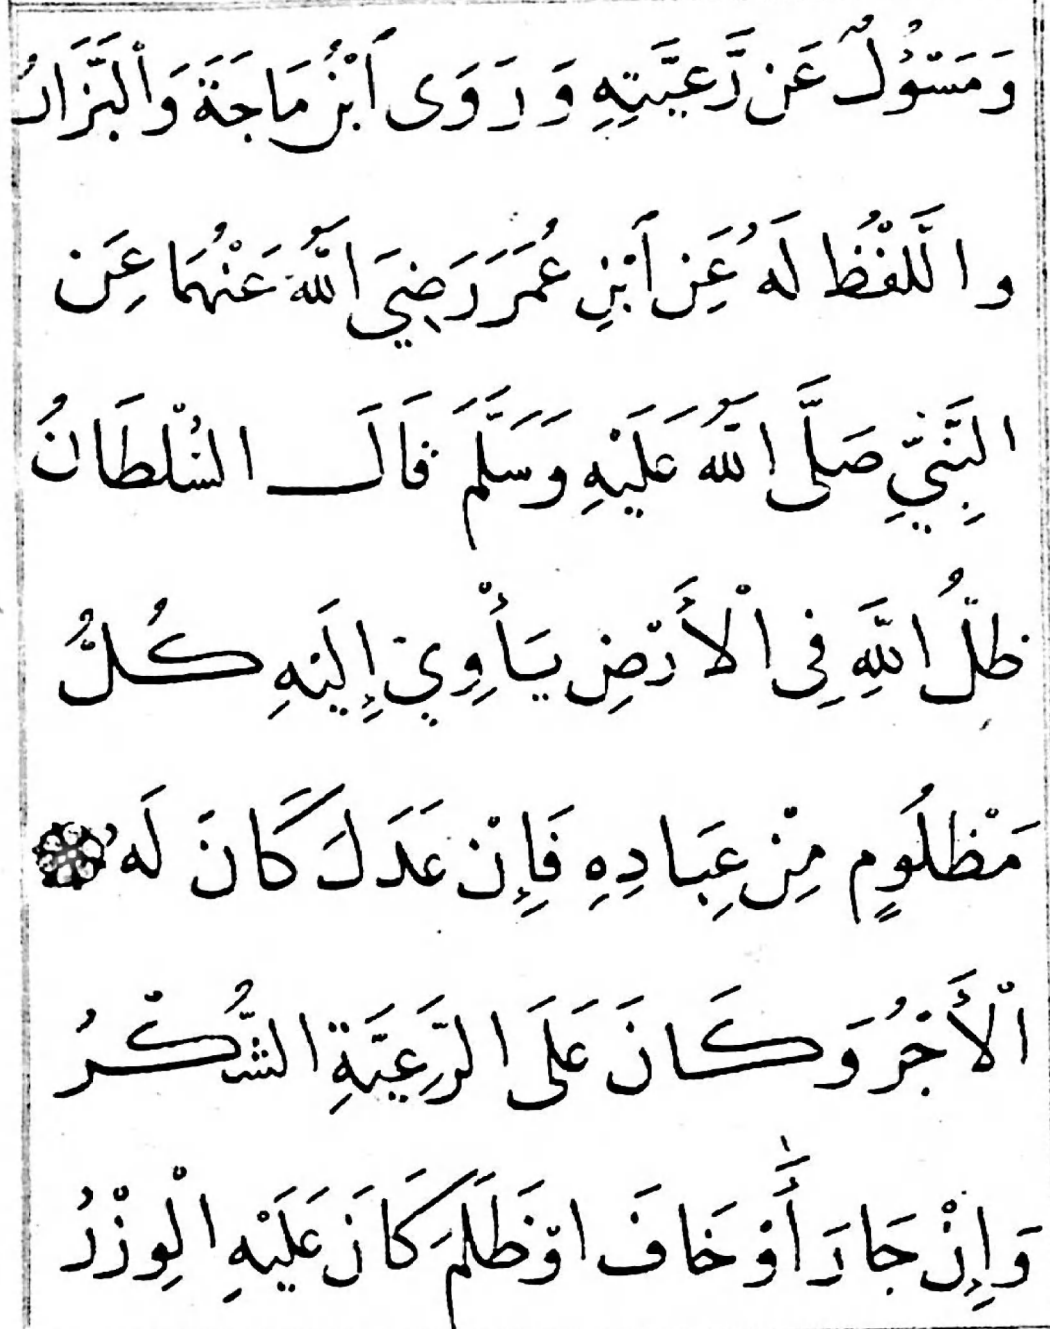 وَمَسْؤُلٌ عَن رَّعِيَّتِهِ وَرَوَى ٱبْنُ مَاجَةَ وَالْبَزَّارُ
واللَّفْظُ لَهُ عَنِ ٱبْنِ عُمَرَ رَضِيَ اللَّهُ عَنْهُمَا عَنِ
النَّبِيِّ صَلَّى اللَّهُ عَلَيْهِ وَسَلَّمَ قَالَ السُّلْطَانُ
ظِلُّ اللَّهِ فِى الْأَرْضِ يَأْوِيْ إِلَيْهِ كُلُّ
مَظْلُومٍ مِنْ عِبَادِهِ فَإِنْ عَدَلَ كَانَ لَهُ
الْأَجْرُ وَكَانَ عَلَى الرَّعِيَّةِ الشُّكْرُ
وَإِنْ جَارَ أَوْ خَافَ اوْ ظَلَمَ كَانَ عَلَيْهِ الْوِزْرُ